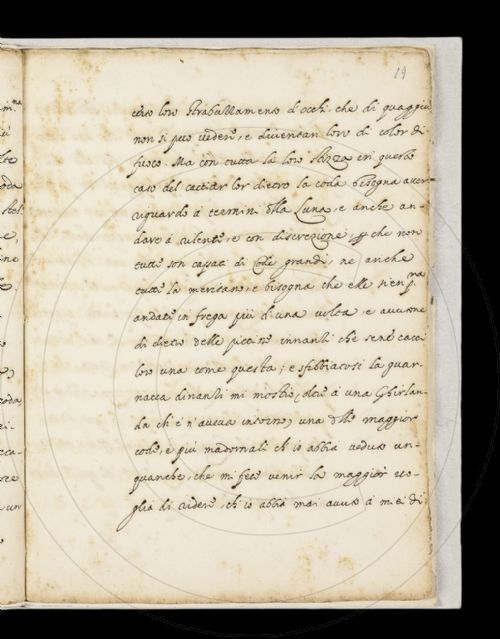 19
loro strabuzzamento d'occhi che di quaggiù
non si può vedere, e diventan loro di color di
fuoco. Ma con tutta la loro forza in questo
caso del cacciar lor dietro la coda bisogna aver
riguardo a' termini della Luna, e anche an-
dare a rilente, e con discrezione, che non
tutte son capaci di Code grandi, ne anche
tutte la meritano, e bisogna che elle sien pma
andate in frega più d'una volta, e avutone
di dietro delle piccine innanzi che sene cacci
loro una come questa; e sfibbiatosi la guar-
nacca dinanzi mi mostrò, oltre a una Ghirlan-
da ch'e' n'aveva intorno, una delle maggior
code, e più madornali ch'io abbia veduto un-
quanche, che mi fece venir la maggior vo-
glia di ridere, ch'io abbia mai avuto a' miei dì